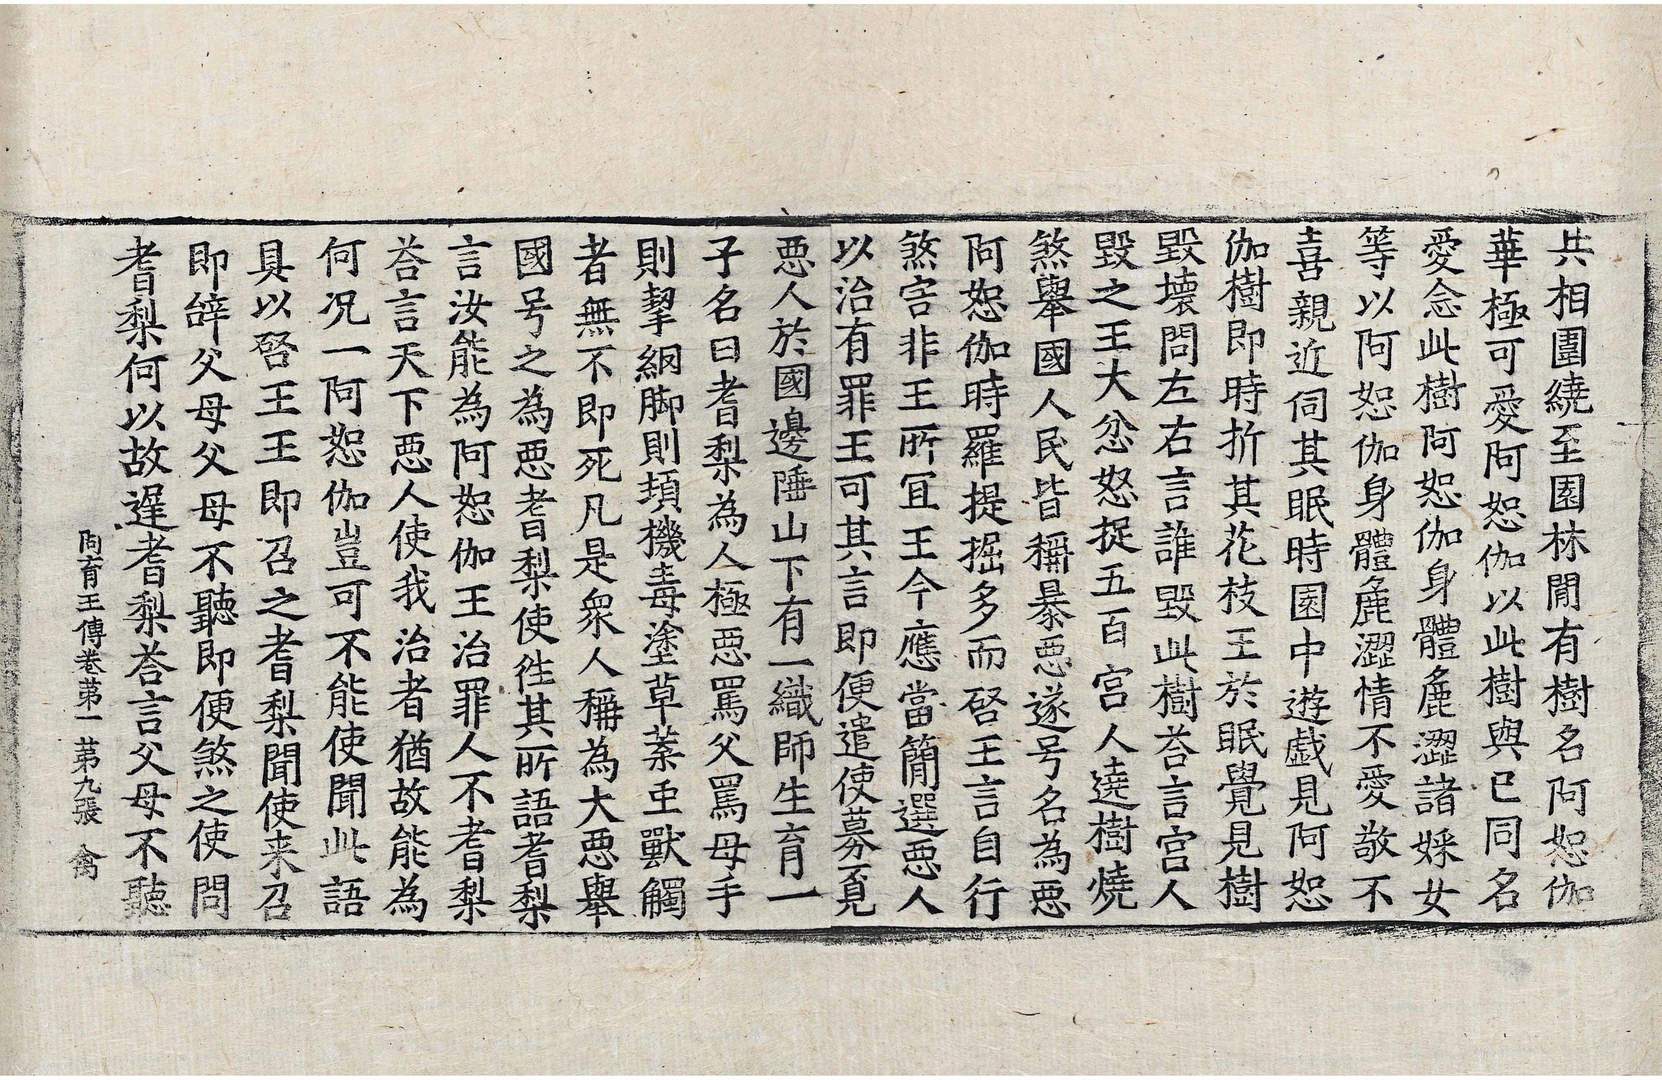 共相圍繞至園林閒有樹名阿恕伽
華極可愛阿恕伽以此樹與已同名
愛念此樹阿恕伽身體麁澀諸婇女
等以阿恕伽身體麁澀情不愛敬不
喜親近伺其眠時園中遊戯見阿恕
伽樹即時折其花枝王於眠覺見樹
毀壞問左右言誰毀此樹荅言宮人
毀之王大忿怒捉五百宮人遶樹燒
煞舉國人民皆稱暴惡遂号名為惡
阿恕伽時羅提掘多而啓王言自行
煞害非王所冝王今應當簡選惡人
以治有罪王可其言即便遣使募覓
惡人於國邊陲山下有一織師生育一
子名曰耆梨為人極惡罵父罵母手
則挐網脚則頍機毒塗草蓁虫獸觸
者無不即死凡是衆人稱為大惡舉
國号之為惡耆梨使徃其所語耆梨
言汝能為阿恕伽王治罪人不耆梨
荅言天下惡人使我治者猶故能為
何况一阿恕伽豈可不能使聞此語
具以啓王王即召之耆梨聞使来召
即辝父母父母不聽即便煞之使問
耆梨何以故遲耆梨荅言父母不聽
阿育王傳卷苐一 苐九張 禽